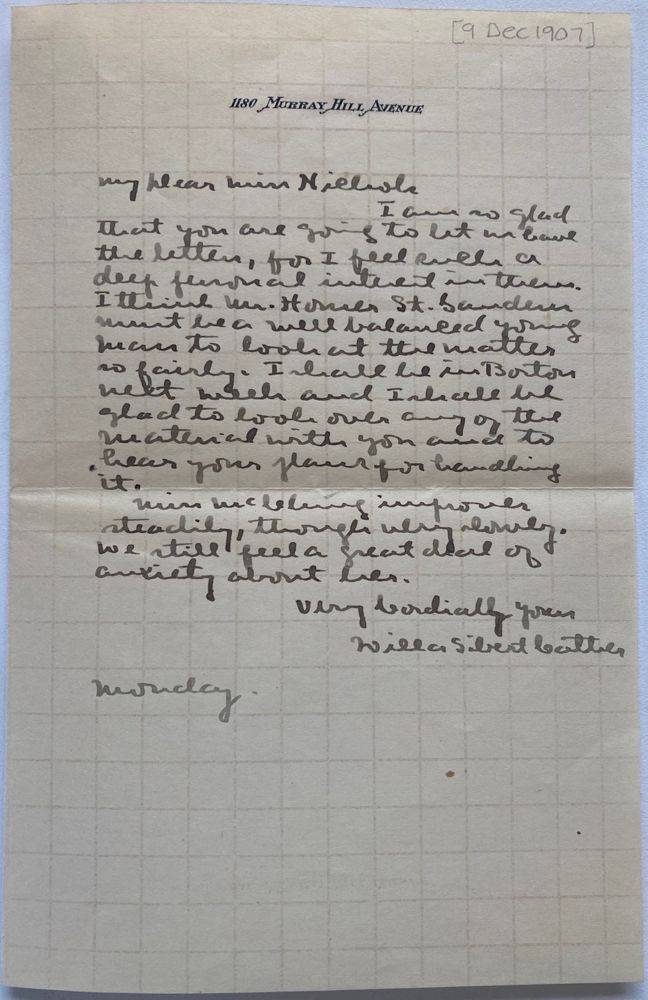 [9 Dec 1907]
1180 Murray Hill Avenue
My Dear Miss Nichols
I am so glad
that you are going to let us have
the letters, for I feel such a
deep personal interest in them.
I think Mr. Homer St. Gaudens
must be a well balanced young
man to look at the matter
so fairly. I shall be in Boston
next week and I shall be
glad to look over any of the
material with you and to
hear your plans for handling
it.
Miss McClung improves
steadily, though very slowly.
We still feel a great deal of
anxiety about her.
Very Cordially yours
Willa Sibert Cather
Monday.